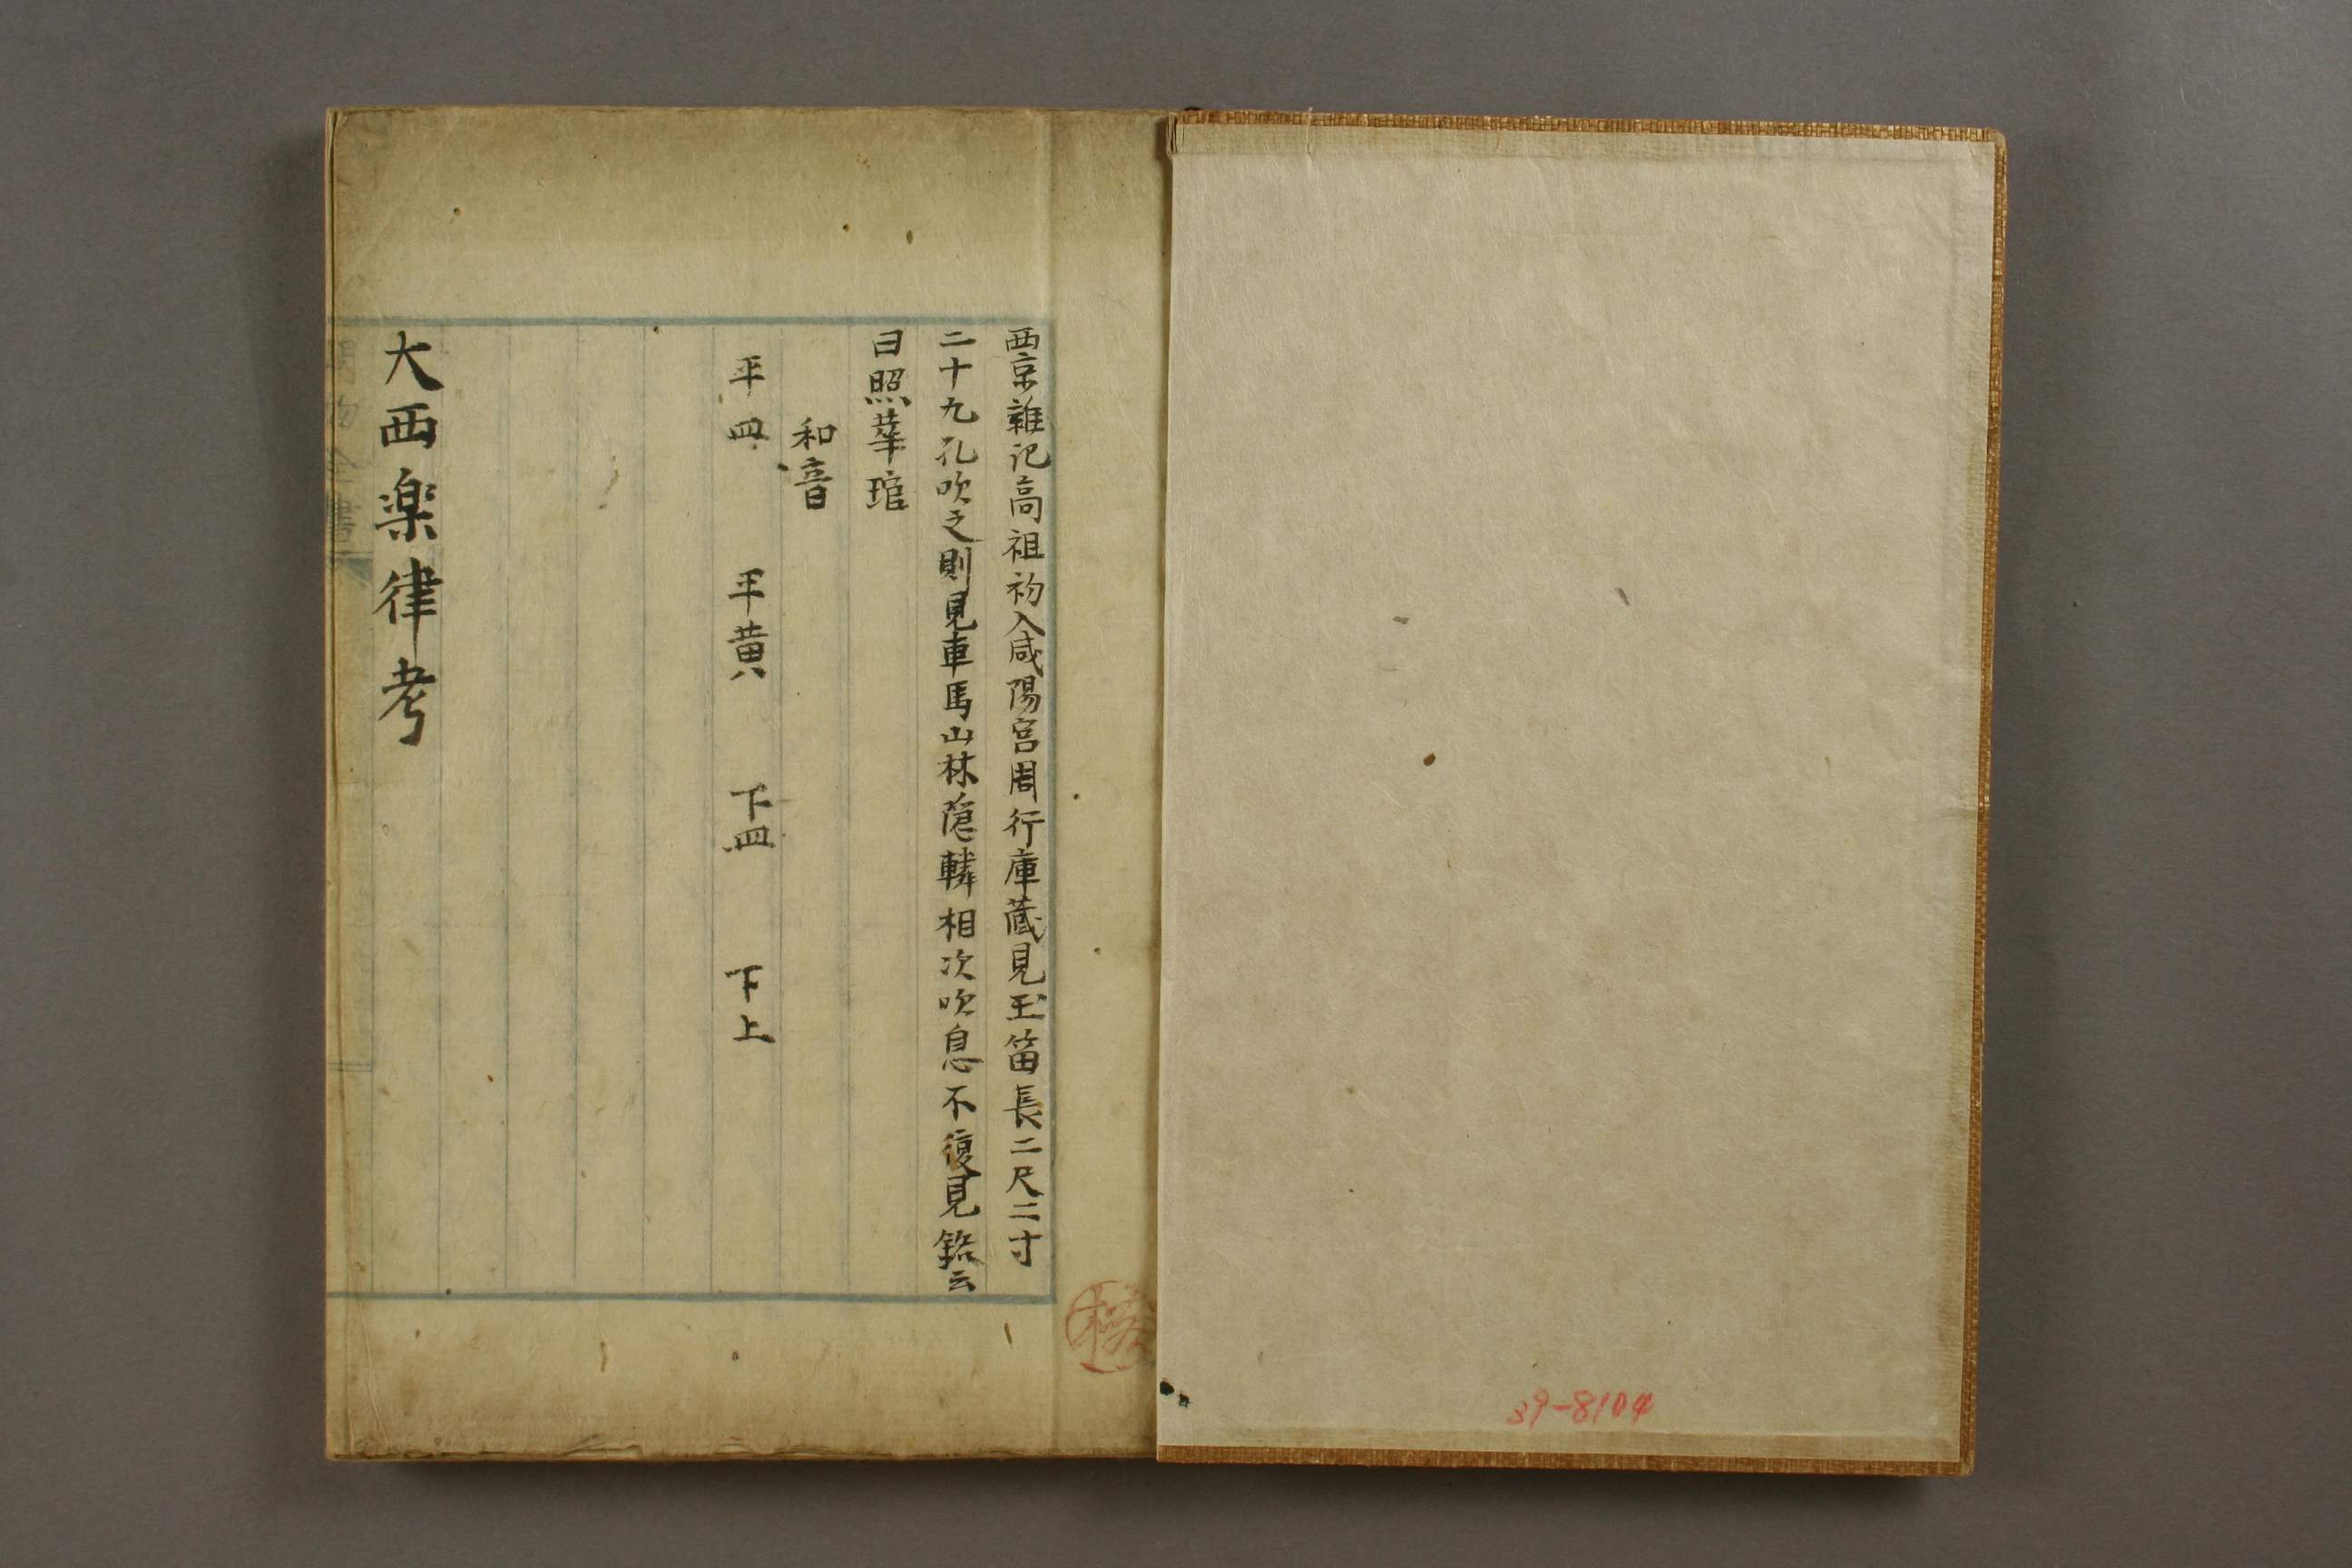 西京雜记高祖初入咸陽宮周行庫蔵見玉笛長二尺二寸
二十九孔吹之則見車馬山林隠轔相次吹息不復見銘云
曰照華琯
和音
平四　平黄　下四　下上
大西楽律考
39-8104